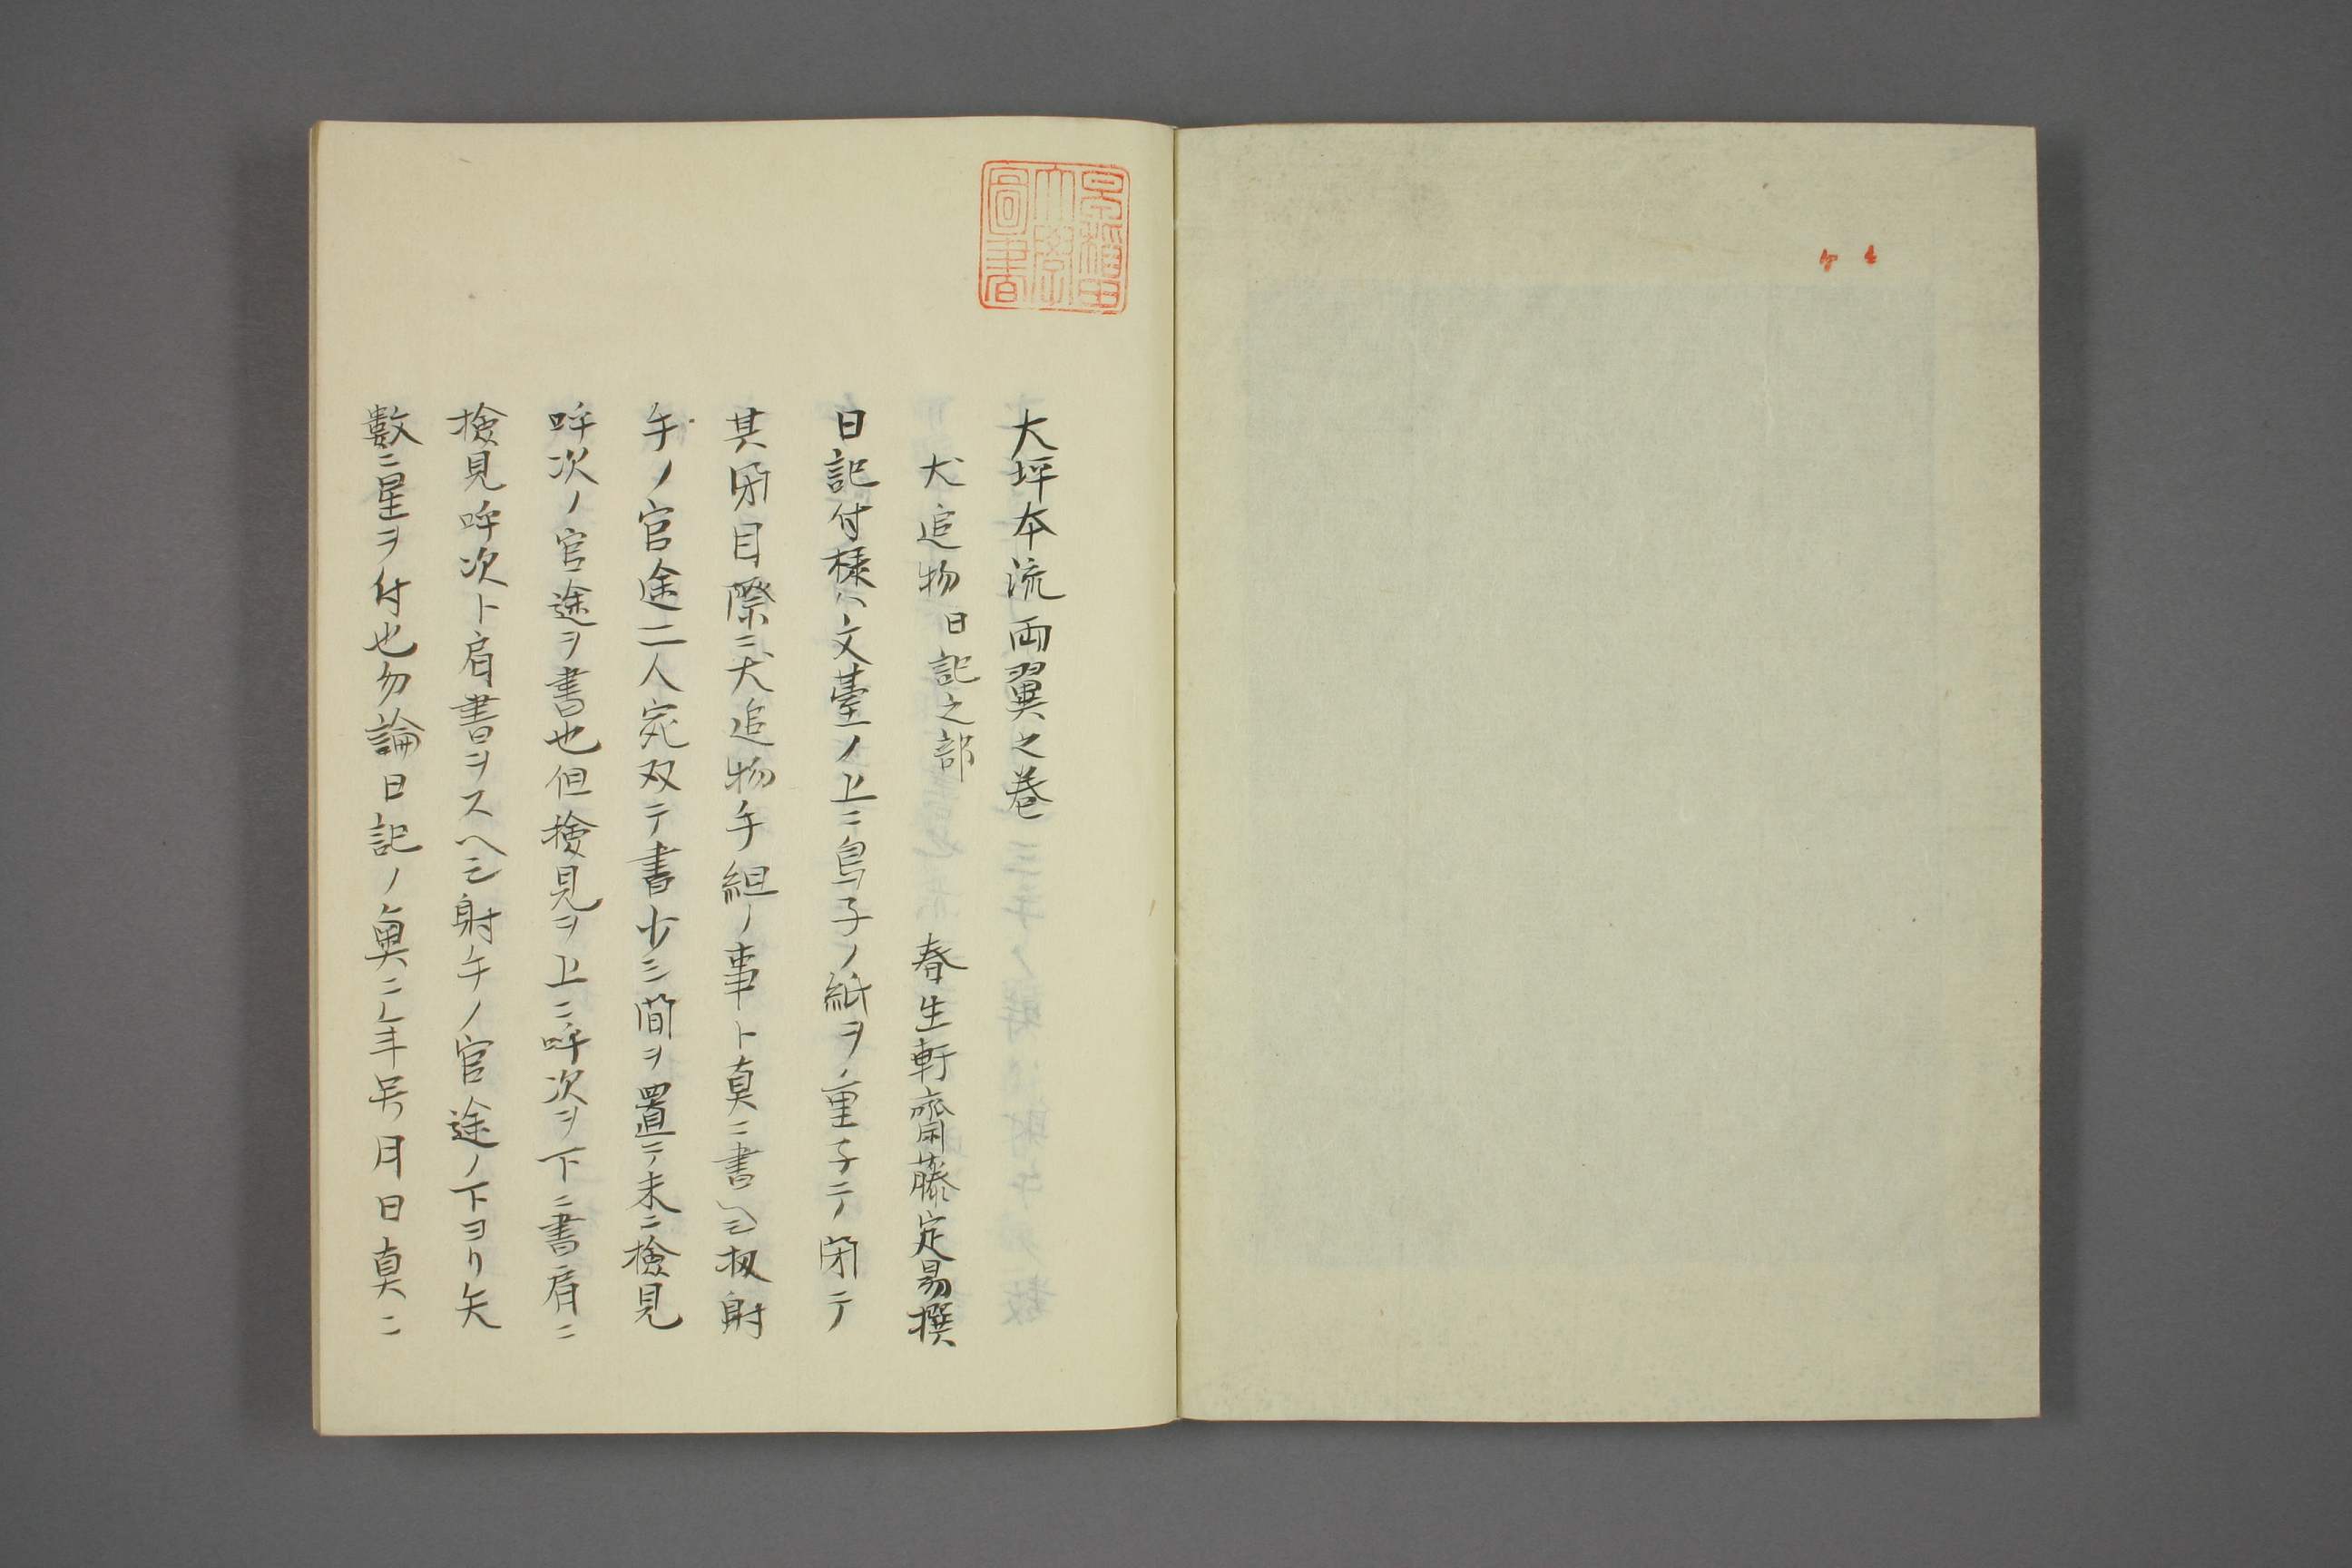 早稲田
大學
圖書
大坪本流両翼之巻
犬追物日記之部
春生軒齋藤定易撰
日記付様ハ文臺ノ上ニ鳥子ノ紙ヲ重子テ閉テ
其閉目際ニ犬追物手組ノ事ト真ニ書ヘシ扨射
手ノ官途二人宛双テ書少シ間ヲ置テ末ニ検見
呼次ノ官途ヲ書也但検見ヲ上ニ呼次ヲ下ニ書肩ニ
検見呼次ト肩書ヲスヘシ射手ノ官途ノ下ヨリ矢
數ニ星ヲ付也勿論日記ノ奥ニ年号月日真ニ